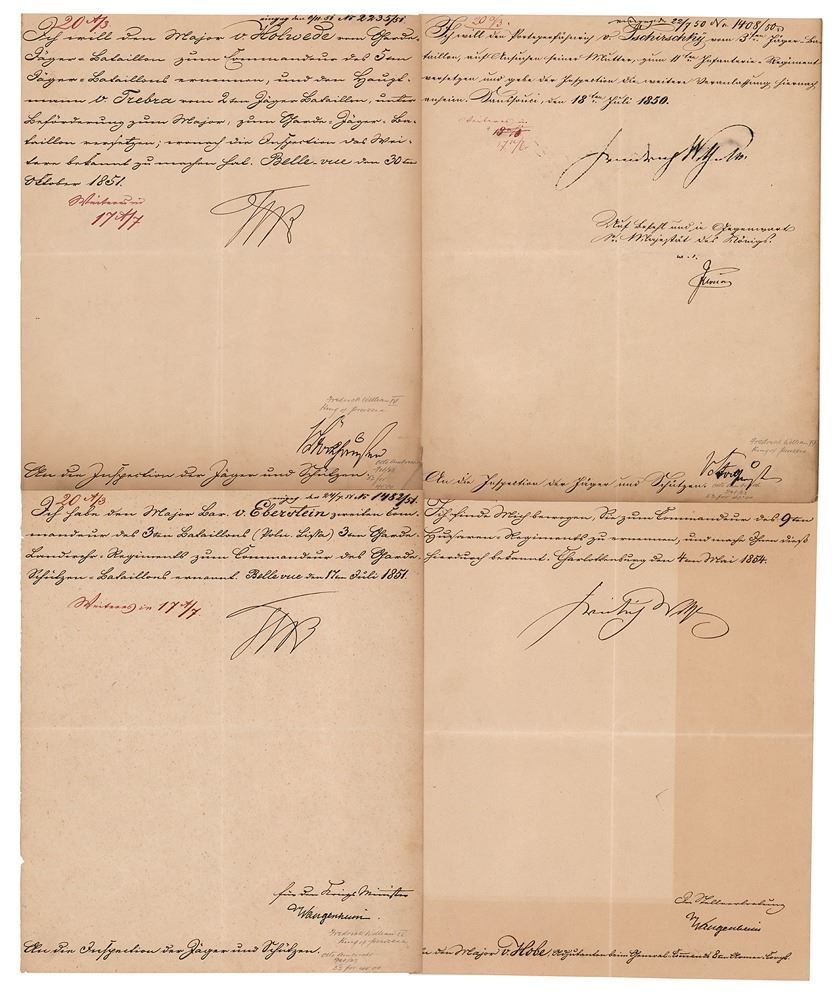 20 A/3.
eingeg. den 5/11. 51. No 2235/51.
Ich will den Major v. Holwede vom Garde-
Jäger-Bataillon zum Commandeur des 5ten
Jäger-Bataillons ernennen, und den Haupt-
mann v. Trebra vom 2ten Jäger-Bataillon, unter
Beförderung zum Major, zum Garde-Jäger-Ba-
taillon versetzen; wonach die Inspection das Wei-
tere bekannt zu machen hat. Bellevue den 30ten
Oktober 1851.
Weiteres in
17 A/7
Frederick William IV
King of Prussia
An die Inspection der Jäger und Schützen.
20 A/3.
No. 1408/50
Ich will den Porteepeefähnrich v. Tschirschky vom 5ten Jäger-Ba-
taillon, auf Ansuchen seiner Mutter, zum 11ten Infanterie-Regiment
versetzen und gebe der Inspection die weitere Veranlassung hiernach
anheim. Sanssouci, den 18ten Juli 1850.
Weiteres in
Friedrich Wilhelm
Auf Befehl und in Gegenwart
Sr. Majestät des Königs.
Frederick William IV
King of Prussia
An die Inspection der Jäger und Schützen.
20 A/3
No 1482/51.
Ich habe den Major Bar. v. Eberstein zweiten Com-
mandeur des 3ten Bataillons (Poln. Lissa) 3ten Garde-
Landwehr-Regiments zum Commandeur des Garde-
Schützen-Bataillons ernannt. Bellevue den 17ten Juli 1851.
Weiteres in 17 A/7.
Für den Kriegs Minister
Wangenheim.
Frederick William IV
King of Prussia
An die Inspection der Jäger und Schützen.
Ich finde Mich bewogen, Sie zum Commandeur des 9ten
Husaren-Regiments zu ernennen, und mache Ihnen dieß
hierdurch bekannt. Charlottenburg den 4ten Mai 1854.
Friedrich Wilh
In Stellvertretung
Wangenheim
An den Major v. Hobe, Adjutanten beim General-Commando 8ten Armee-Corps.